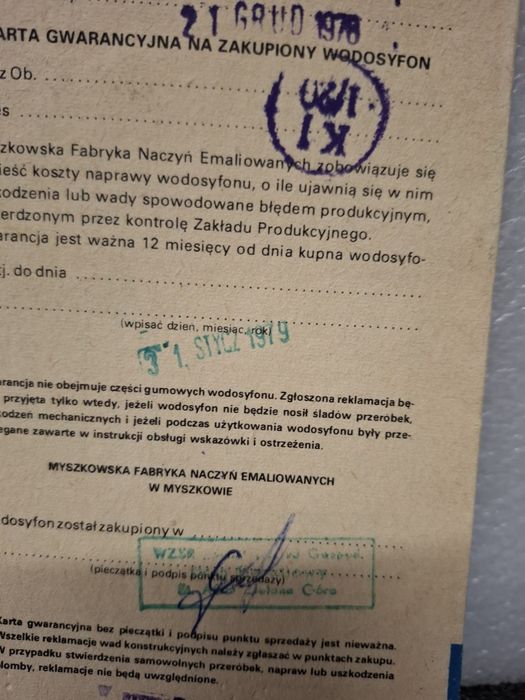 21 GRUD 1978
ARTA GWARANCYJNA NA ZAKUPIONY WODOSYFON
z Ob. ........
1/20
KJ
s ........
zkowska Fabryka Naczyń Emaliowanych zobowiązuje się
ieść koszty naprawy wodosyfonu, o ile ujawnią się w nim
kodzenia lub wady spowodowane błędem produkcyjnym,
ierdzonym przez kontrolę Zakładu Produkcyjnego.
arancja jest ważna 12 miesięcy od dnia kupna wodosyfo-
tj. do dnia ........
(wpisać dzień, miesiąc, rok)
31. STYCZ 1979
arancja nie obejmuje części gumowych wodosyfonu. Zgłoszona reklamacja bę-
przyjęta tylko wtedy, jeżeli wodosyfon nie będzie nosił śladów przeróbek,
kodzeń mechanicznych i jeżeli podczas użytkowania wodosyfonu były prze-
egane zawarte w instrukcji obsługi wskazówki i ostrzeżenia.
MYSZKOWSKA FABRYKA NACZYŃ EMALIOWANYCH
W MYSZKOWIE
dosyfon został zakupiony w ........
WZSR
(pieczątka i podpis punktu sprzedaży)
Zielona Góra
Karta gwarancyjna bez pieczątki i podpisu punktu sprzedaży jest nieważna.
Wszelkie reklamacje wad konstrukcyjnych należy zgłaszać w punktach zakupu.
W przypadku stwierdzenia samowolnych przeróbek, napraw lub uszkodzenia
plomby, reklamacje nie będą uwzględnione.